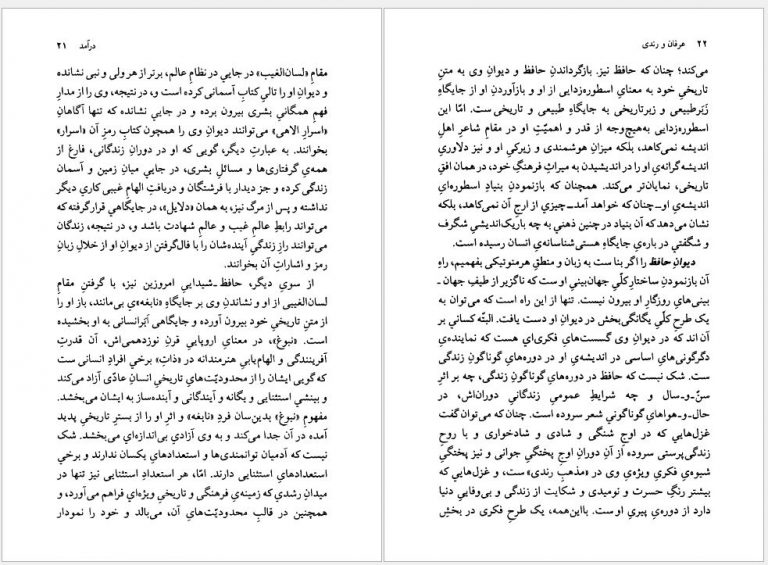 درآمد ۲۱
مقامِ «لسان‌الغیب» در جایی در نظامِ عالم، برتر از هر ولی و نبی نشانده
و دیوانِ او را تالیِ کتابِ آسمانی کرده است و، در نتیجه، وی را از مدارِ
فهمِ همگانیِ بشری بیرون برده و در جایی نشانده که تنها آگاهانِ
«اسرارِ الاهی» می‌توانند دیوانِ وی را همچون کتابِ رمزِ آن «اسرار»
بخوانند. به عبارتِ دیگر، گویی که او در دورانِ زندگانی، فارغ از
همه‌ی گرفتاری‌ها و مسائلِ بشری، در جایی میانِ زمین و آسمان
زندگی کرده و جز دیدار با فرشتگان و دریافتِ الهامِ غیبی کاری دیگر
نداشته و پس از مرگ نیز، به همان «دلایل»، در جایگاهی قرار گرفته که
می‌تواند رابطِ عالمِ غیب و عالمِ شهادت باشد و، در نتیجه، زندگان
می‌توانند رازِ زندگیِ آینده‌شان را با فال‌گرفتن از دیوانِ او از خلالِ زبانِ
رمز و اشاراتِ آن بخوانند.
از سوی دیگر، حافظ‌ـ‌شیدایی امروزین نیز، با گرفتنِ مقامِ
لسان‌الغیبی از او و نشاندنِ وی بر جایگاهِ «نابغه»‌ی بی‌مانند، باز او را
از متنِ تاریخیِ خود بیرون آورده و جایگاهی اَبَرانسانی به او بخشیده
است. «نبوغ»، در معنایِ اروپاییِ قرنِ نوزدهمی‌اش، آن قدرتِ
آفرینندگی و الهام‌یابیِ هنرمندانه در «ذاتِ» برخی افرادِ انسانی ست
که گویی ایشان را از محدودیّت‌هایِ تاریخیِ انسانِ عادّی آزاد می‌کند
و بینشی استثنایی و یگانه و آیندگانی و آینده‌ساز به ایشان می‌بخشد.
مفهومِ «نبوغ» بدین‌سان فردِ «نابغه» و اثرِ او را از بسترِ تاریخیِ پدید
آمده در آن جدا می‌کند و به وی آزادیِ بی‌اندازه‌ای می‌بخشد. شک
نیست که آدمیان توانمندی‌ها و استعدادهایِ یکسان ندارند و برخی
استعدادهایِ استثنایی دارند. امّا، هر استعدادِ استثنایی نیز تنها در
میدانِ رشدی که زمینه‌یِ فرهنگی و تاریخیِ ویژه‌ای فراهم می‌آورد، و
همچنین در قالبِ محدودیّت‌هایِ آن، می‌بالد و خود را نمودار
۲۲ عرفان و رندی
می‌کند؛ چنان که حافظ نیز. بازگرداندنِ حافظ و دیوانِ وی به متنِ
تاریخیِ خود به معنایِ اسطوره‌زدایی از او و بازآوردنِ او از جایگاهِ
زَبَرطبیعی و زبرتاریخی به جایگاهِ طبیعی و تاریخی ست. امّا این
اسطوره‌زدایی به‌هیچ‌وجه از قدر و اهمیّتِ او در مقامِ شاعرِ اهلِ
اندیشه نمی‌کاهد، بلکه میزانِ هوشمندی و زیرکیِ او و نیز دلاوریِ
اندیشه‌گرانه‌ی او را در اندیشیدن به میراثِ فرهنگِ خود، در همان افقِ
تاریخی، نمایان‌تر می‌کند. همچنان که بازنمودنِ بنیادِ اسطوره‌ایِ
اندیشه‌یِ او‌ــ‌چنان که خواهد آمد‌ــ‌چیزی از ارجِ آن نمی‌کاهد، بلکه
نشان می‌دهد که آن بنیاد در چنین ذهنی به چه باریک‌اندیشیِ شگرف
و شگفتی در باره‌یِ جایگاهِ هستی‌شناسانه‌یِ انسان رسیده است.
دیوانِ حافظ را اگر بنا ست به زبان و منطقِ هرمنوتیکی بفهمیم، راهِ
آن بازنمودنِ ساختارِ کلّیِ جهان‌بینیِ او ست که ناگزیر از طیفِ جهان‌ـ
بینی‌هایِ روزگارِ او بیرون نیست. تنها از این راه است که می‌توان به
یک طرحِ کلّیِ یگانگی‌بخش در دیوانِ او دست یافت. البتّه کسانی بر
آن اند که در دیوانِ وی گسست‌هایِ فکری‌ای هست که نماینده‌ی
دگرگونی‌هایِ اساسی در اندیشه‌یِ او در دوره‌هایِ گوناگونِ زندگی
ست. شک نیست که حافظ در دوره‌هایِ گوناگونِ زندگی، چه بر اثرِ
سنّ‌ـ‌و‌ـ‌سال و چه شرایطِ عمومیِ زندگانیِ دوران‌اش، در
حال‌ـ‌و‌ـ‌هواهایِ گوناگونی شعر سروده است. چنان که می‌توان گفت
غزل‌هایی که در اوجِ شنگی و شادی و شادخواری و با روحِ
زندگی‌پرستی سروده از آنِ دورانِ اوجِ پختگیِ جوانی و نیز پختگیِ
شیوه‌یِ فکریِ ویژه‌یِ وی در «مذهبِ رندی» ست، و غزل‌هایی که
بیشتر رنگِ حسرت و نومیدی و شکایت از زندگی و بی‌وفاییِ دنیا
دارد از دوره‌یِ پیریِ او ست. بااین‌همه، یک طرحِ فکری در بخشِ